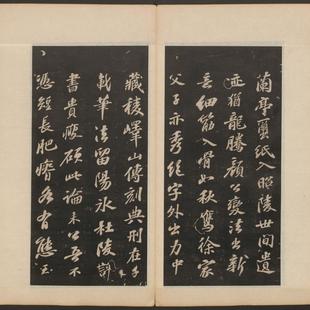 蘭亭繭紙入昭陵世間遺
迹猶龍騰顏公變法出新
意細筋入骨如秋鷹徐家
父子亦秀絕字外出力中
藏稜嶧山傳刻典刑在千
載筆法留陽冰杜陵評
書貴瘦硬此論未公吾不
憑短長肥瘠各有態玉